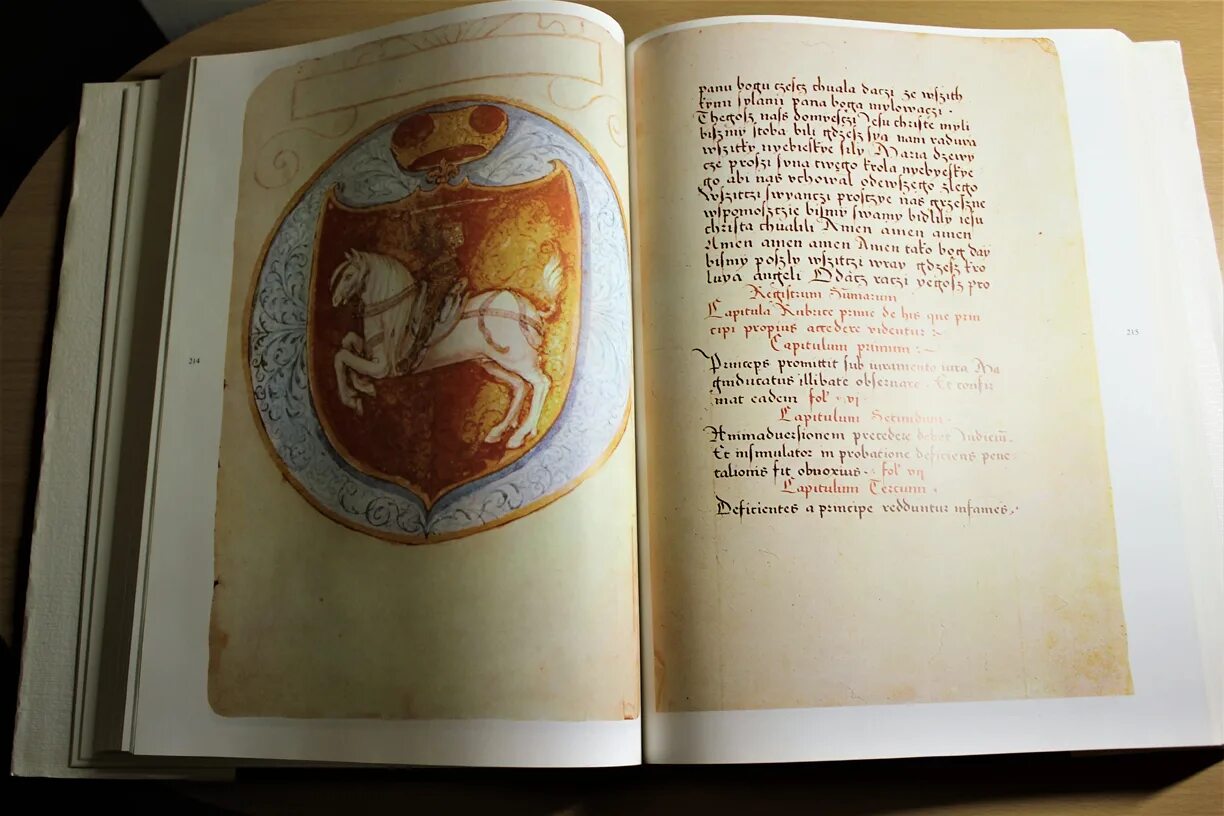 214
panu bogu czescz chuala daczi ze wszith
kymi sylanii pana boga mylowaczi ·
Thegosz nas domyesczi Jesu christe myli
biszmy stoba bili gdzesz sya nam raduva
wszitky nyebieskye sily Maria dzewy
cze proszi syna twego krola nyebyeskye
go abi nas vchowal odewszego zlego
Wszitczi swyantzi prostzye nas grzeszne
wspomosztzie bismy swamy bidlily iesu
christa chualili Amen amen amen
Amen amen amen Amen tako bog day
bismy poszly wszitczi wray gdzesz kro
luya angeli Odatz raczi yegosz pro
Registrum Sumarum
Capitula Rubrice prime de his que prin
cipi propius accedere videntur :~
Capitulum primum : ~
Princeps promittit sub iuramento iura Ma
gniducatus illibate observare · Et confir
mat eadem fol° · vi ·
Capitulum Secundum ·
Animadversionem precedere debet Judiciū ·
Et insimulator in probatione deficiens pene
talionis fit obnoxius · fol° vij
Capitulum Tercium ·
Deficientes a principe redduntur infames ·
215